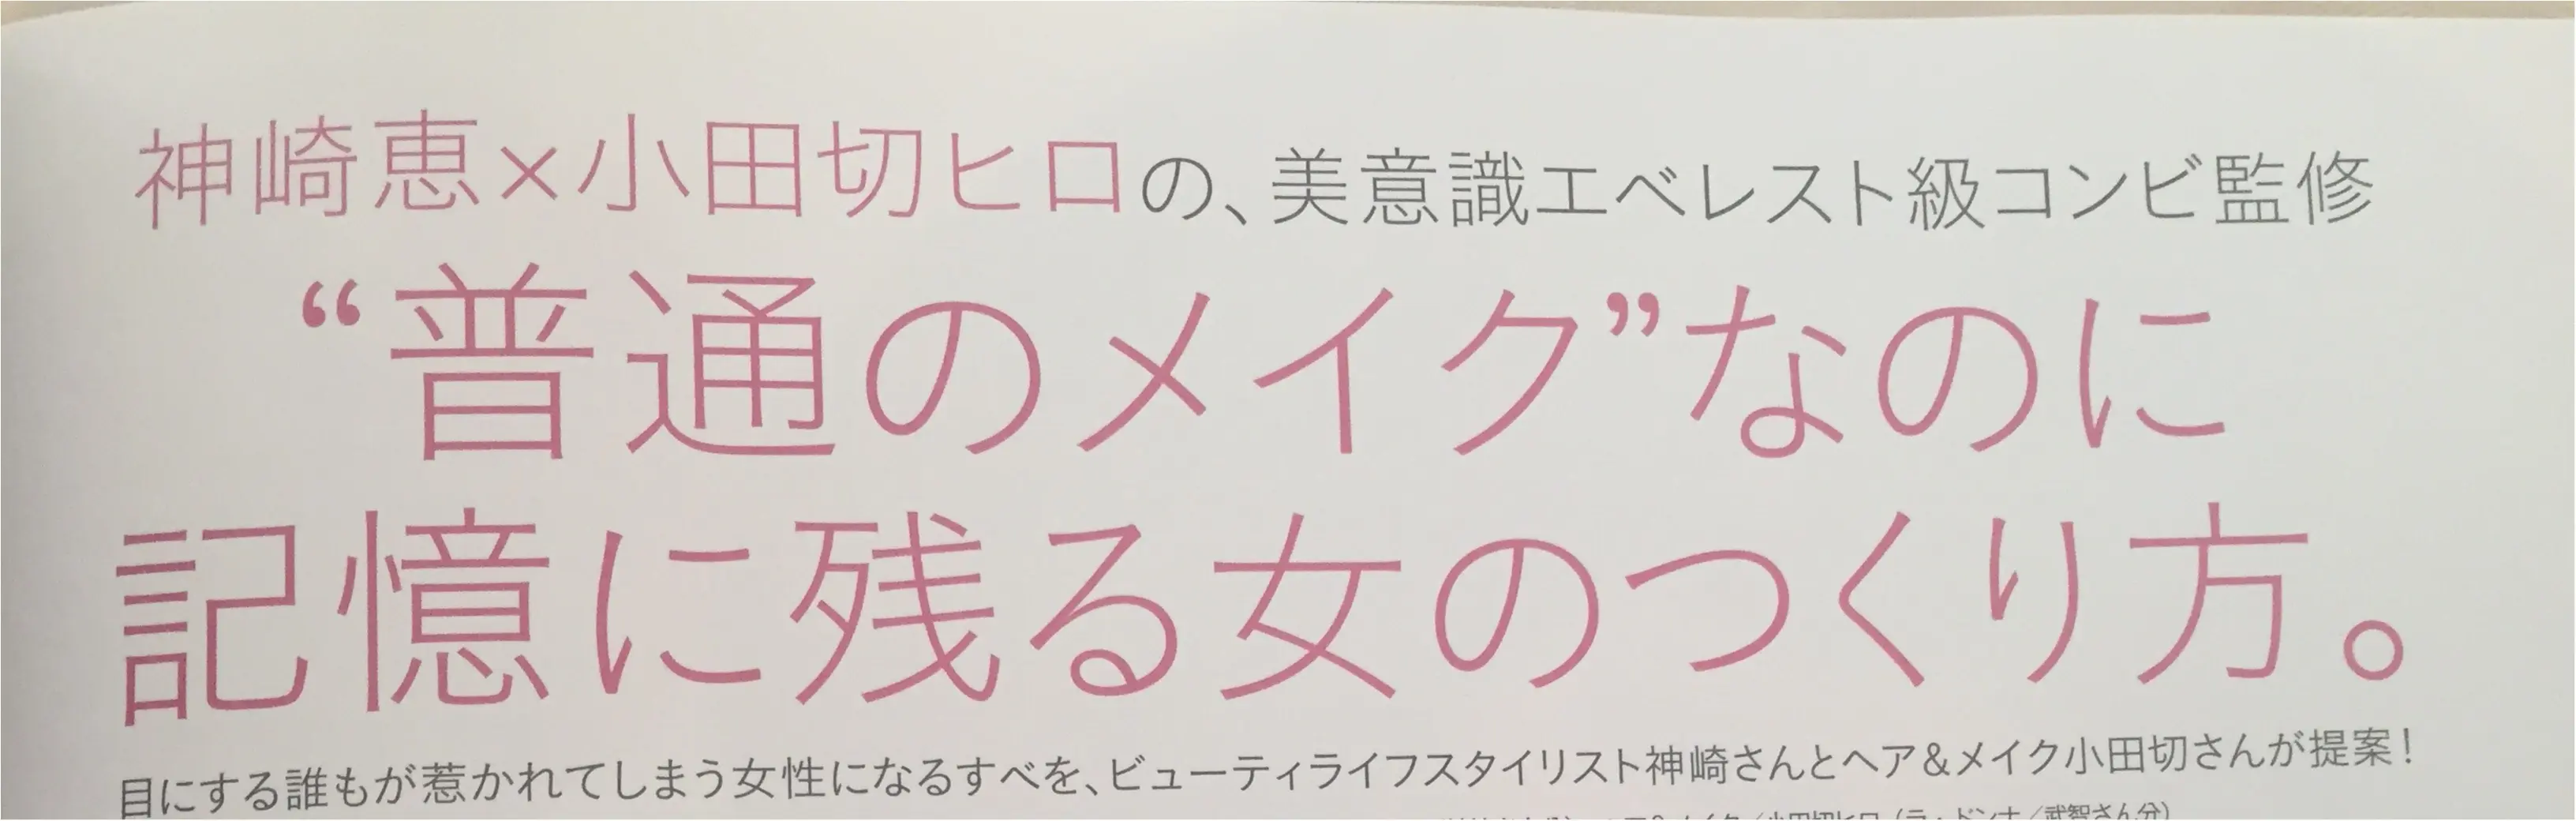 神崎恵×小田切ヒロの、美意識エベレスト級コンビ監修
“普通のメイク”なのに
記憶に残る女のつくり方。
目にする誰もが惹かれてしまう女性になるすべを、ビューティライフスタイリスト神崎さんとヘア&メイク小田切さんが提案!
メイク/小田切ヒロ(ラ・ドンナ/武智さん分)